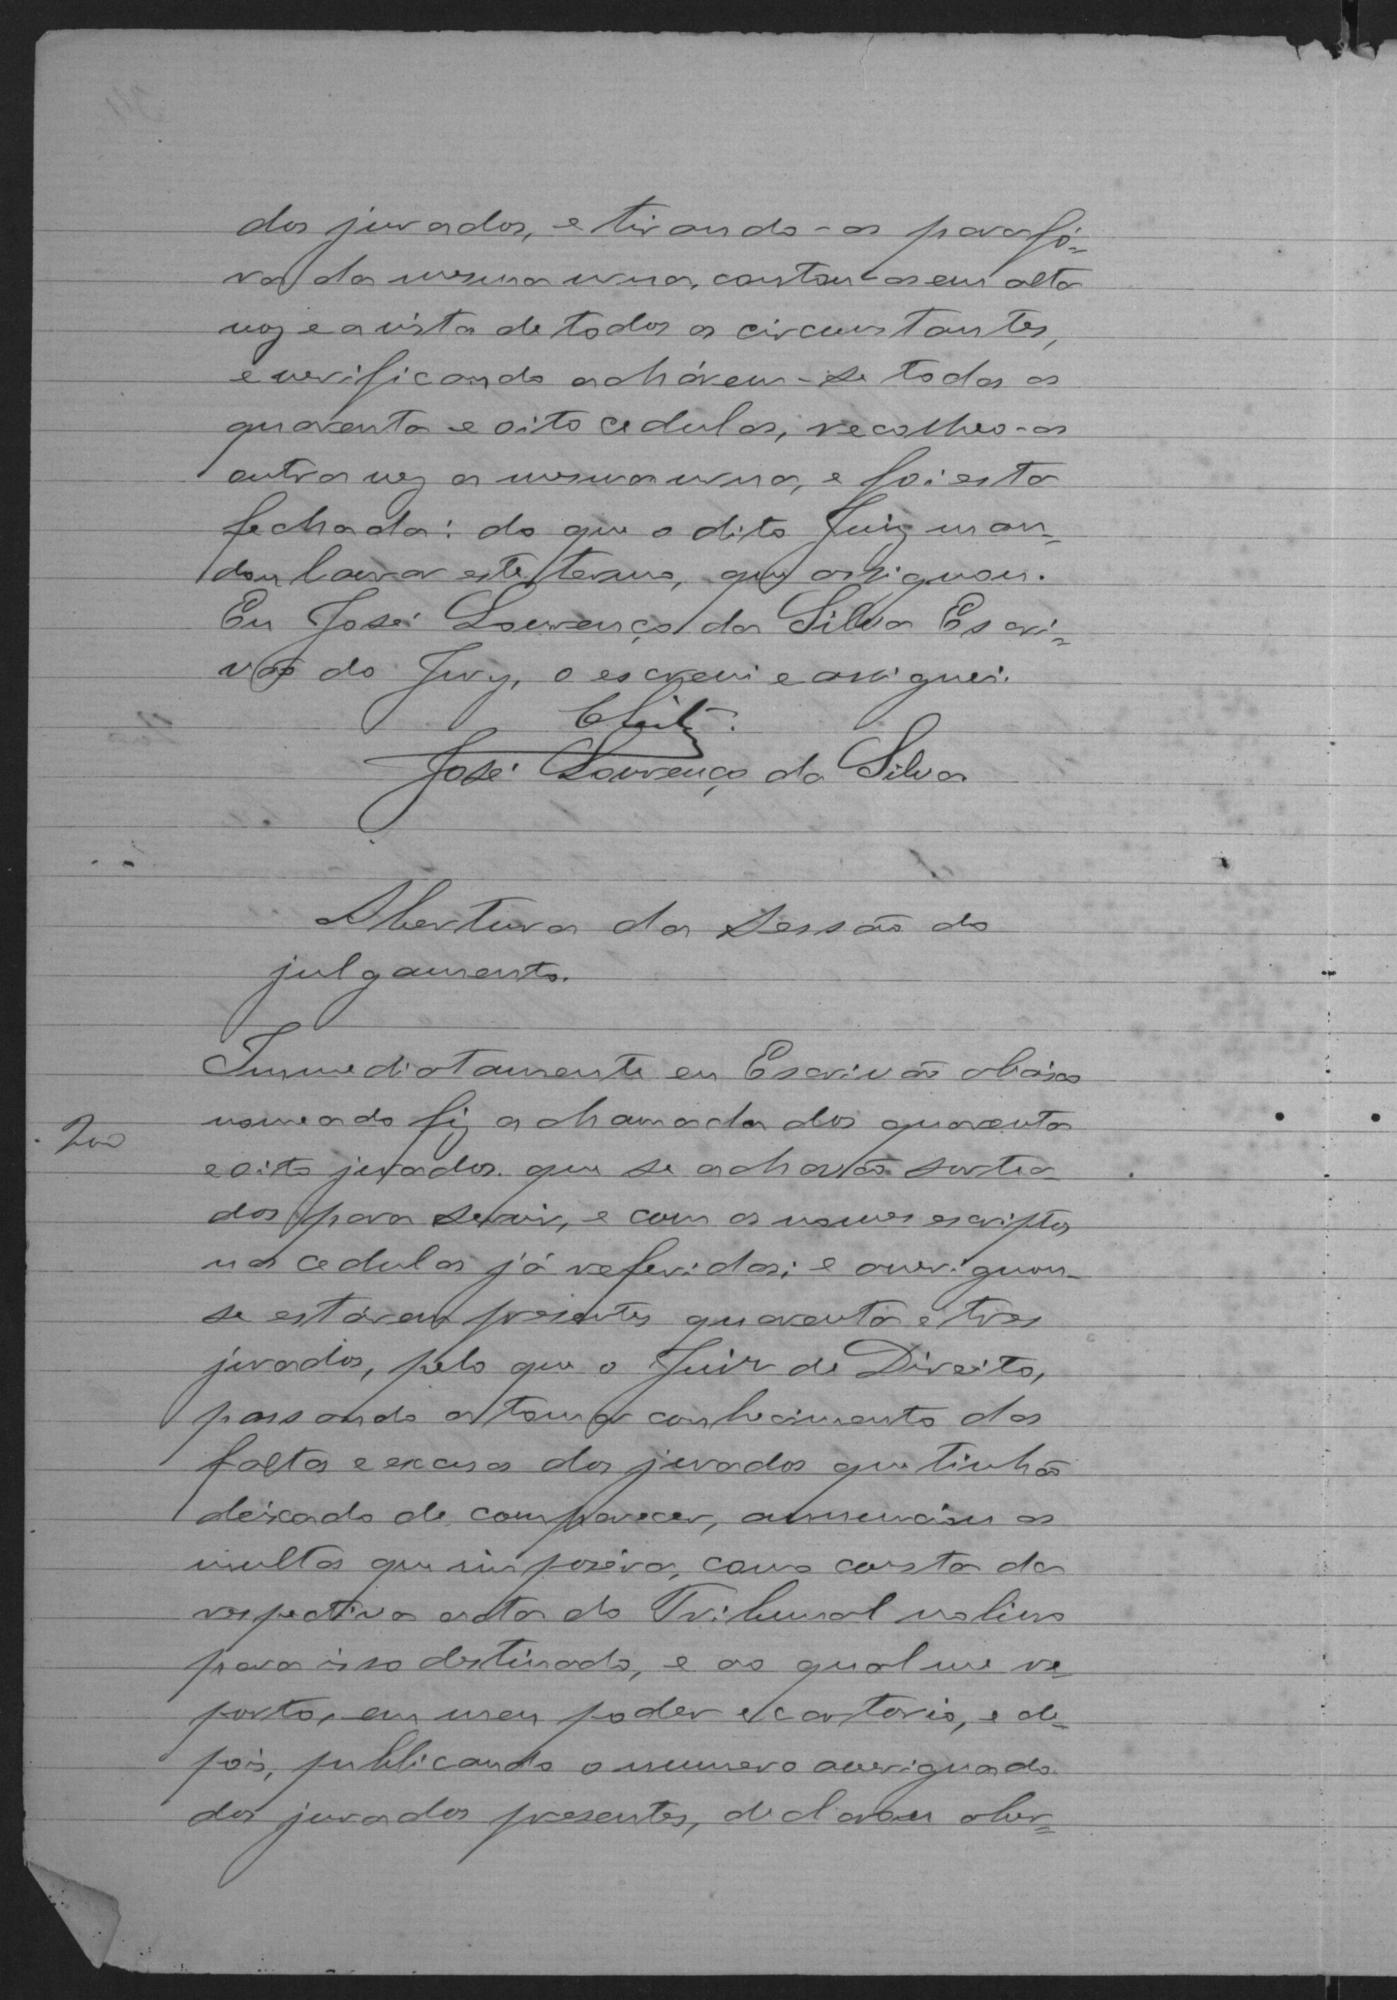 dos jurados, e tirando-as para fó-
ra da mesma urna, contou-as em alta
voz e a vista de todos os circunstantes,
e verificando achárem-se todas as
quarenta e oito cedulas, recolheo-as
outra vez a mesma urna, e foi esta
fechada: do que o dito Juiz man-
dou lavrar este termo, que assignou.
Eu José Lourenço da Silva Escri-
vão do Jury, o escrevi e assignei.
José Lourenço da Silva
Abertura da Sessão do
julgamento.
Immediatamente eu Escrivão abáixo
nomeado fiz a chamada dos quarenta
200
e oito jurados que se achavão sortea-
dos para servir, e com os nomes escriptos
nas cedulas já referidas; e averiguou-
se estárem presentes quarenta e tres
jurados, pelo que o Juiz de Direito,
passando a tomar conhecimento das
faltas e excusas dos jurados que tinhão
deixado de comparecer, annunciou as
multas que imposéra, como consta da
respectiva acta do Tribunal no livro
para isso destinado, e ao qual me re-
porto, em meu poder e cartorio, e de-
pois, publicando o numero averiguado
dos jurados presentes, declarou aber-